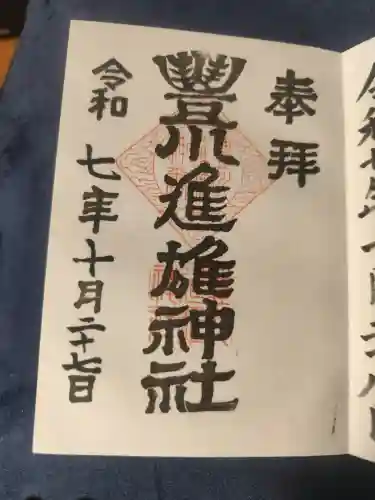 奉拝
豊川進雄神社
令和七年十月二十七日